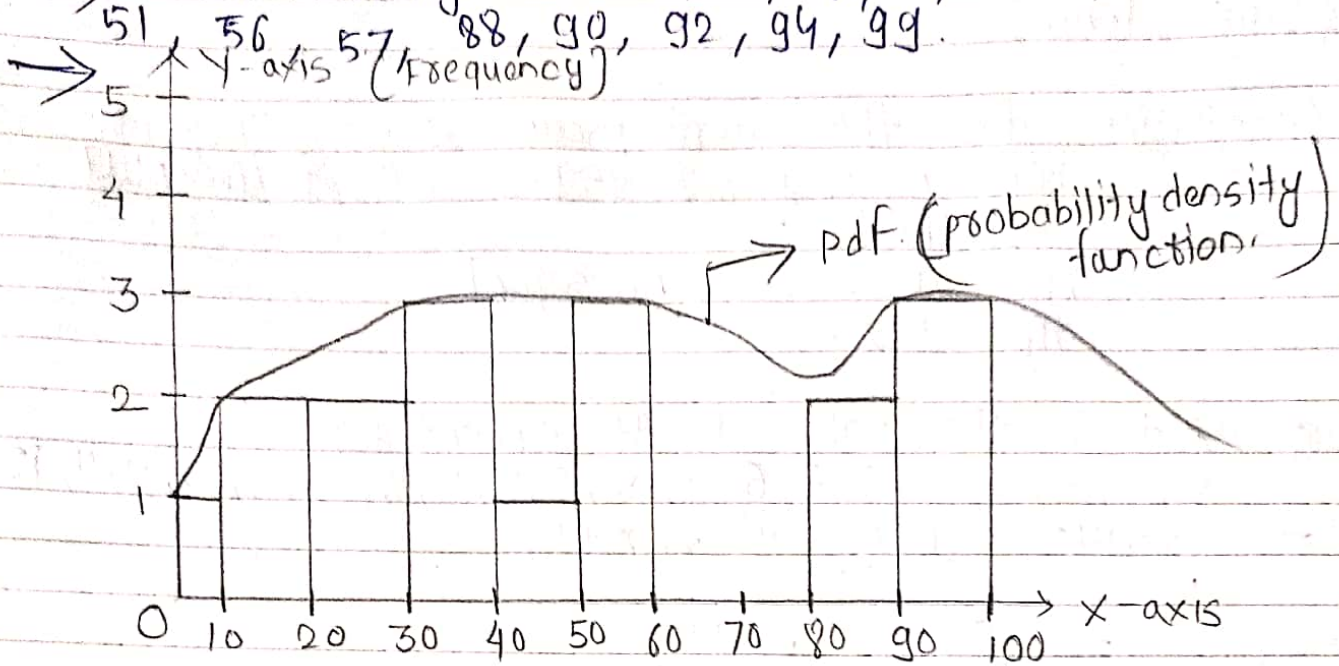 51, 56, 57, 88, 90, 92, 94, 99.
Y-axis (Frequency)
5
4
pdf. (probability density
function.)
3
2
1
0 10 20 30 40 50 60 70 80 90 100 X-axis